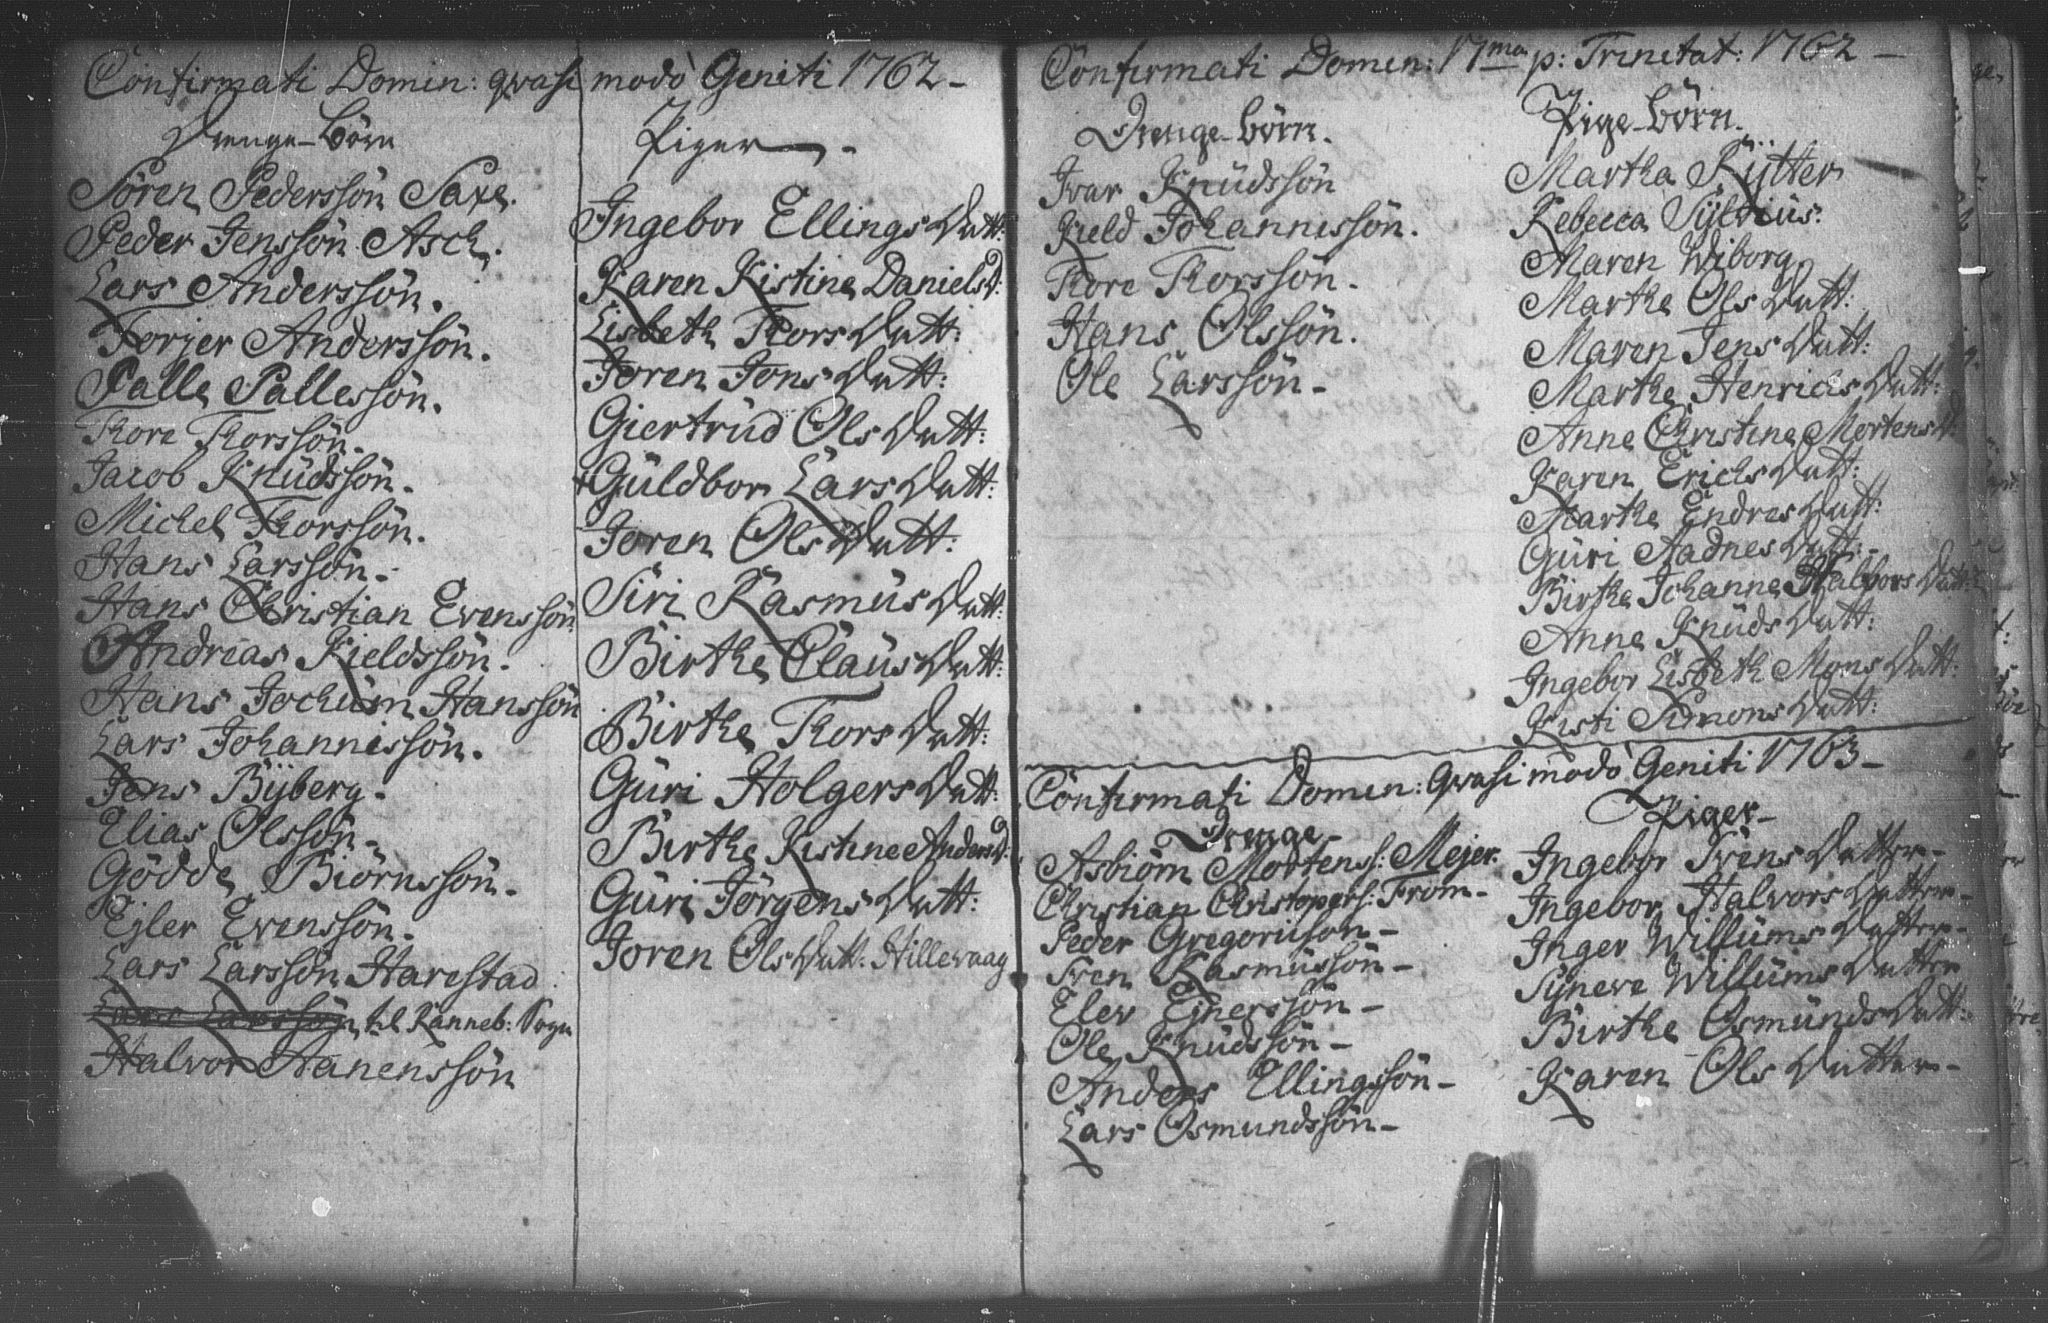 Confirmati Domin: qvasi modò Geniti 1762 –
Drenge-börn
Sören Pederssön Saxe.
Peder Jenssön Asch.
Lars Anderssön.
Torjer Anderssön.
Palle Pallessön.
Thore Thorssön.
Jacob Knüdssön.
Michel Thorssön.
Hans Larssön –
Hans Christian Evenssön
Andreas Kieldssön.
Hans Jochüm Hanssön
Lars Johannissön.
Jens Bÿberg.
Elias Olssön –
Gödde Biörnssön –
Ejler Evenssön.
Lars Larssön Harestad
Lars Larssön til Ranneb: Sogn
Halvor Aanenssön
Piger –
Ingebor Ellings Datt:
Karen Kistine Daniels D:
Lisbeth Thors Datt:
Joren Jons Datt:
Giertrüd Ols Datt:
+ Güldbor Lars Datt:
Joren Ols Datt:
Siri Rasmüs Datt:
Birthe Claüs Datt:
Birthe Thors Datt:
Güri Holgers Datt:
Birthe Kistine Anders D:
Güri Jörgens Datt:
Joren Ols Datt: Hillevaag
Confirmati Domin: 17ma p: Trinitat: 1762 –
Drenge-börn.
Ivar Knüdssön
Kield Johannissön.
Thore Thorssön.
Hans Olssön.
Ole Larssön –
Pige-börn.
Martha Rÿtter
Rebecca Sÿlvius.
Maren Wiborg
Marthe Ols Datt:
Maren Jens Datt:
Marthe Henrichs Datt:
Anne Christine Mortens D:
Karen Erichs Datt:
Marthe Endres Datt:
Güri Aadnes Datt: –
Birthe Johanne Halvors Datt:
Anne Knüds Datt:
Ingebor Lisbeth Mons Datt:
Kisti Simons Datt:
Confirmati Domin: Qvasi modo Geniti 1763 –
Drenge –
Asbiörn Mortens: Mejer.
Christian Christopers: From –
Peder Gregoriison –
Sven Rasmüssön –
Elev Ejnerssön –
Ole Knüdssön –
Anders Ellingssön –
Lars Osmundssön –
Piger –
Ingebor Svens Datter –
Ingebor Halvors Datter –
Inger Willüms Datter –
Sÿneve Willüms Datter
Birthe Osmünds Datt:
Karen Ols Datter –